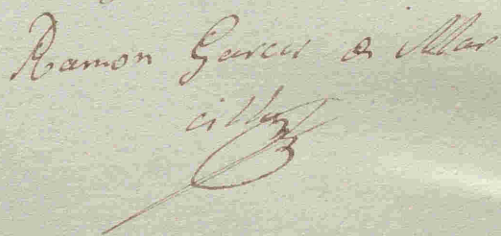 Ramon Garcia de Mar
cilla